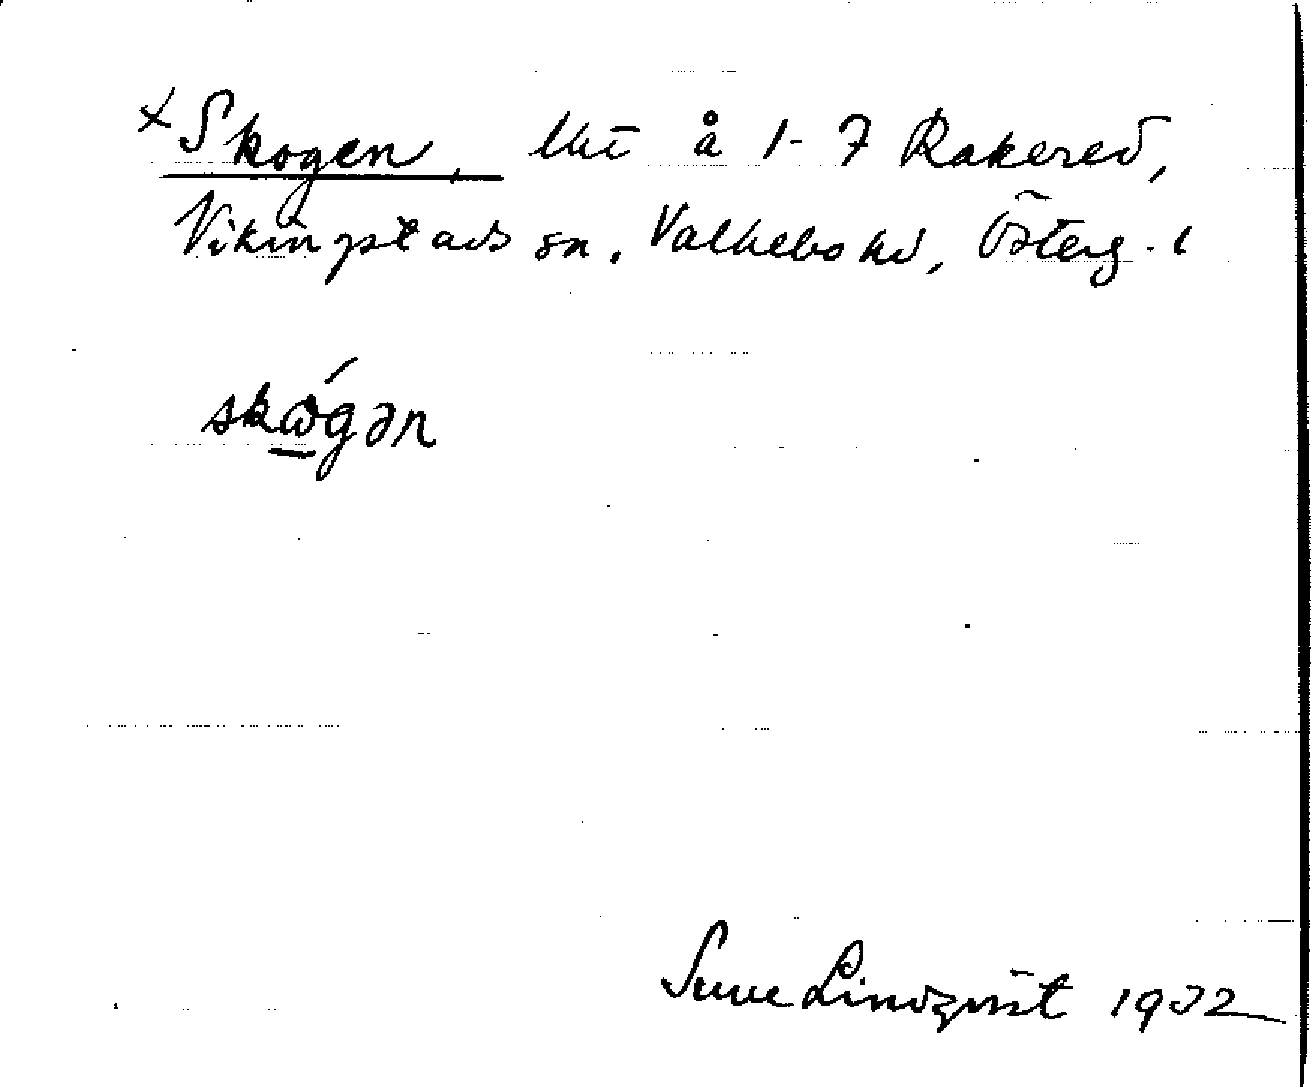 × Skogen, lht å 1-7 Rakered,
Vikingstads sn, Valkebo hd, Österg. l
skωgən
Sune Lindqvist 1932